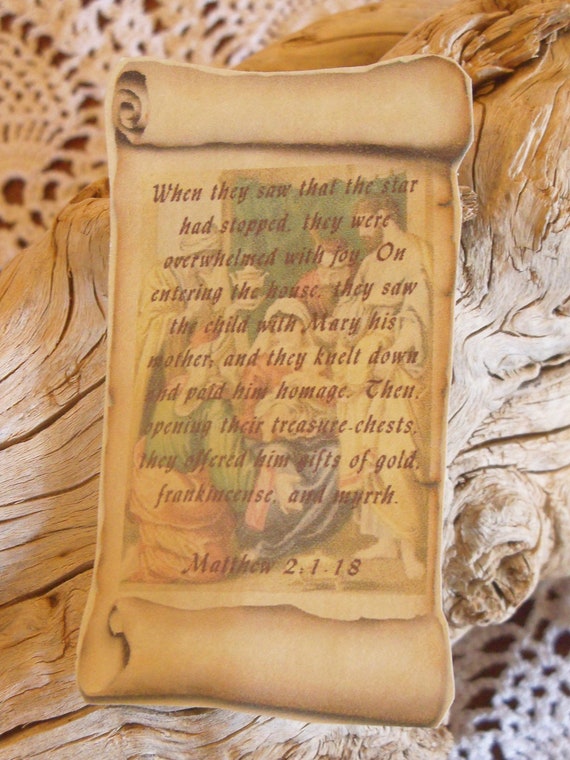 When they saw that the star
had stopped, they were
overwhelmed with joy. On
entering the house, they saw
the child with Mary his
mother, and they knelt down
and paid him homage. Then,
opening their treasure-chests,
they offered him gifts of gold,
frankincense, and myrrh.
Matthew 2:1-18